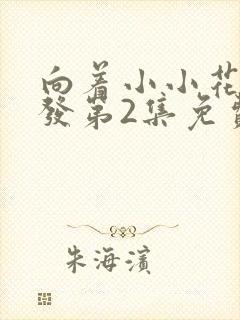 向着小小花
發第2集免
朱海濱